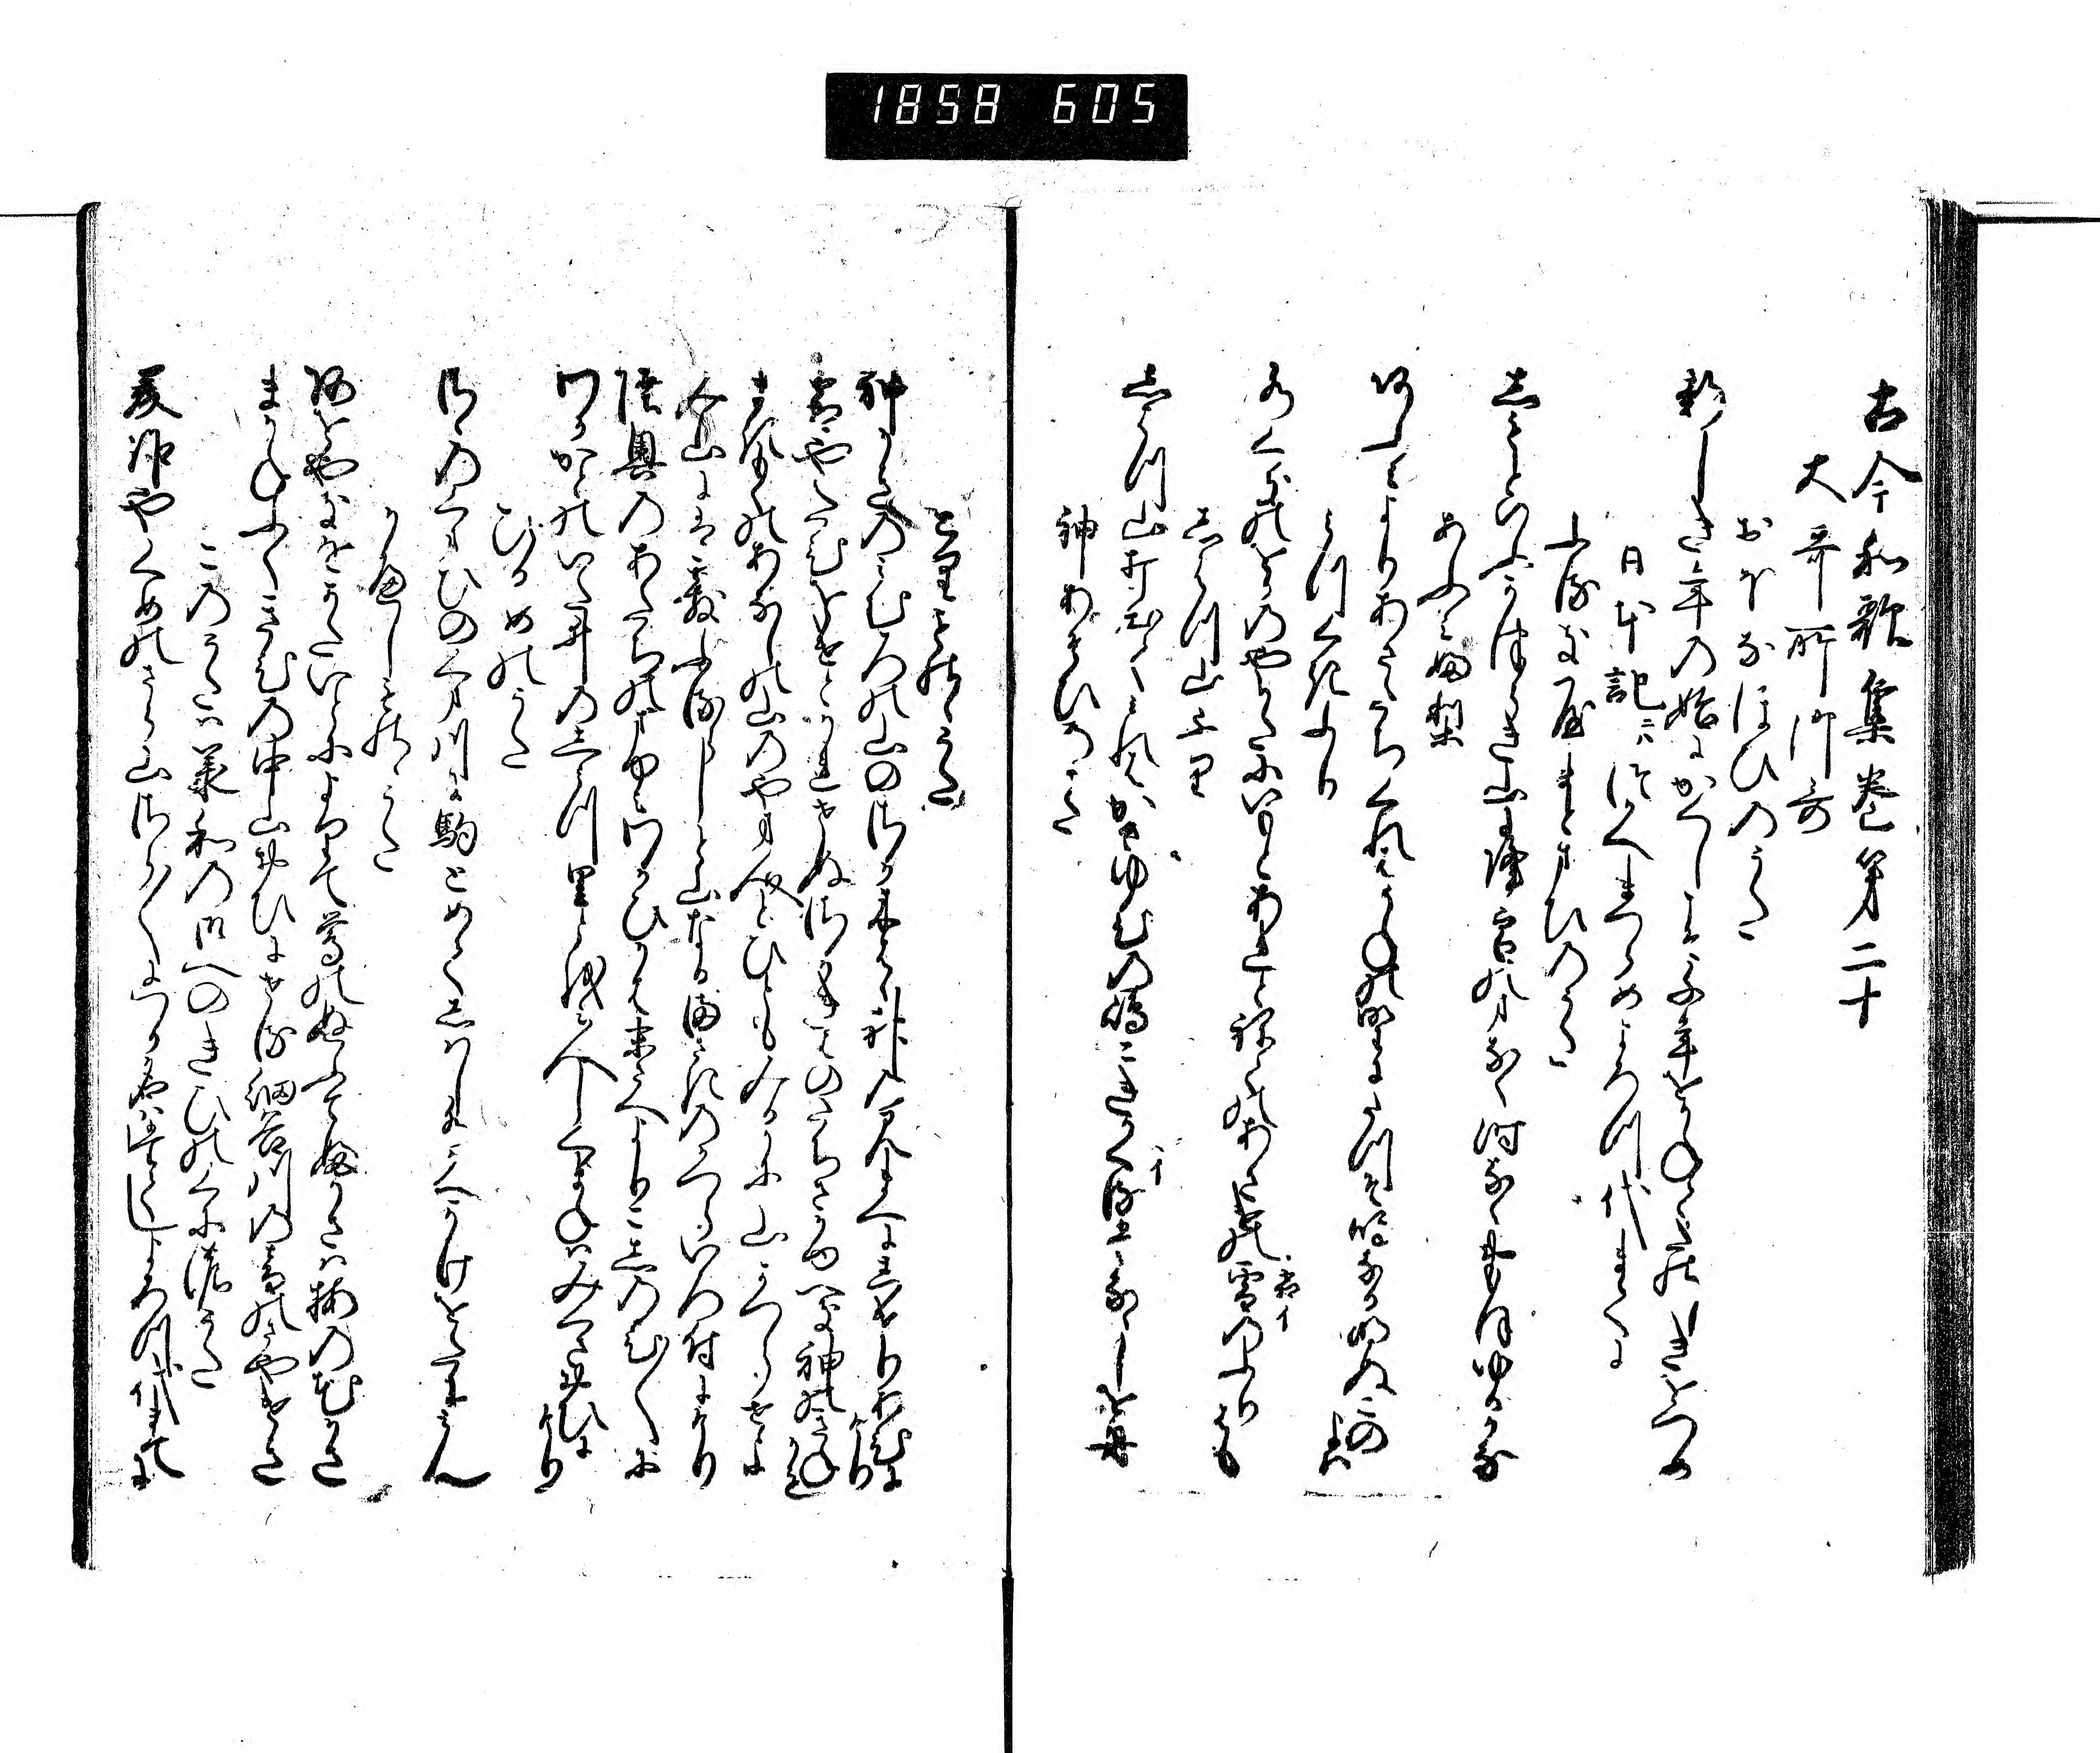 1858 605
古今和歌集巻第二十
大哥所御哥
おほなほひのうた
新しき年の始にかくしこそ千年をかねてたのしきをつめ
日本記ニハつかへまつらめよろつ代まてに
ふるきやまとまひのうた
しもとゆふかつらき山に降雪のまなく時なくおもほゆるかな
あふみふり
近江よりあさたちくれはうねの野にたつそ鳴なる明ぬこの夜は
みつくきふり
水くきのをかのやかたにいもとあれとねての朝けの霜のふりはも
しはつ山ふり
しはつ山打出てみれはかさゆひの嶋こきかくる棚なしを舟
神あそひのうた
とりものゝうた
神かきのみむろの山のさか木はは神のみまへにしけりあひにけり
霜やたひをけとかれせぬさか木はのたちさかゆへき神のきねかも
まきもくのあなしの山のやま人とひともみるかに山かつらせよ
み山にはあられふるらしと山なるまさきのかつらいろ付にけり
陸奥のあたちのまゆみわかひかは末さへよりこしのひ〳〵に
わかかとのいた井のし水里とをみ人しくまねはみくさおひにけり
ひるめのうた
さゝのくまひのくま川に駒とめてしはし水かへかけをたにみん
かへしものゝうた
青柳をかたいとによりて鶯のぬふてふかさは梅の花かさ
まかねふくきひの中山帯にせる細谷川の音のさやけさ
このうたは承和の御へのきひの国の哥
美作やくめのさら山さら〳〵にわか名はたてしよろつ代まてに